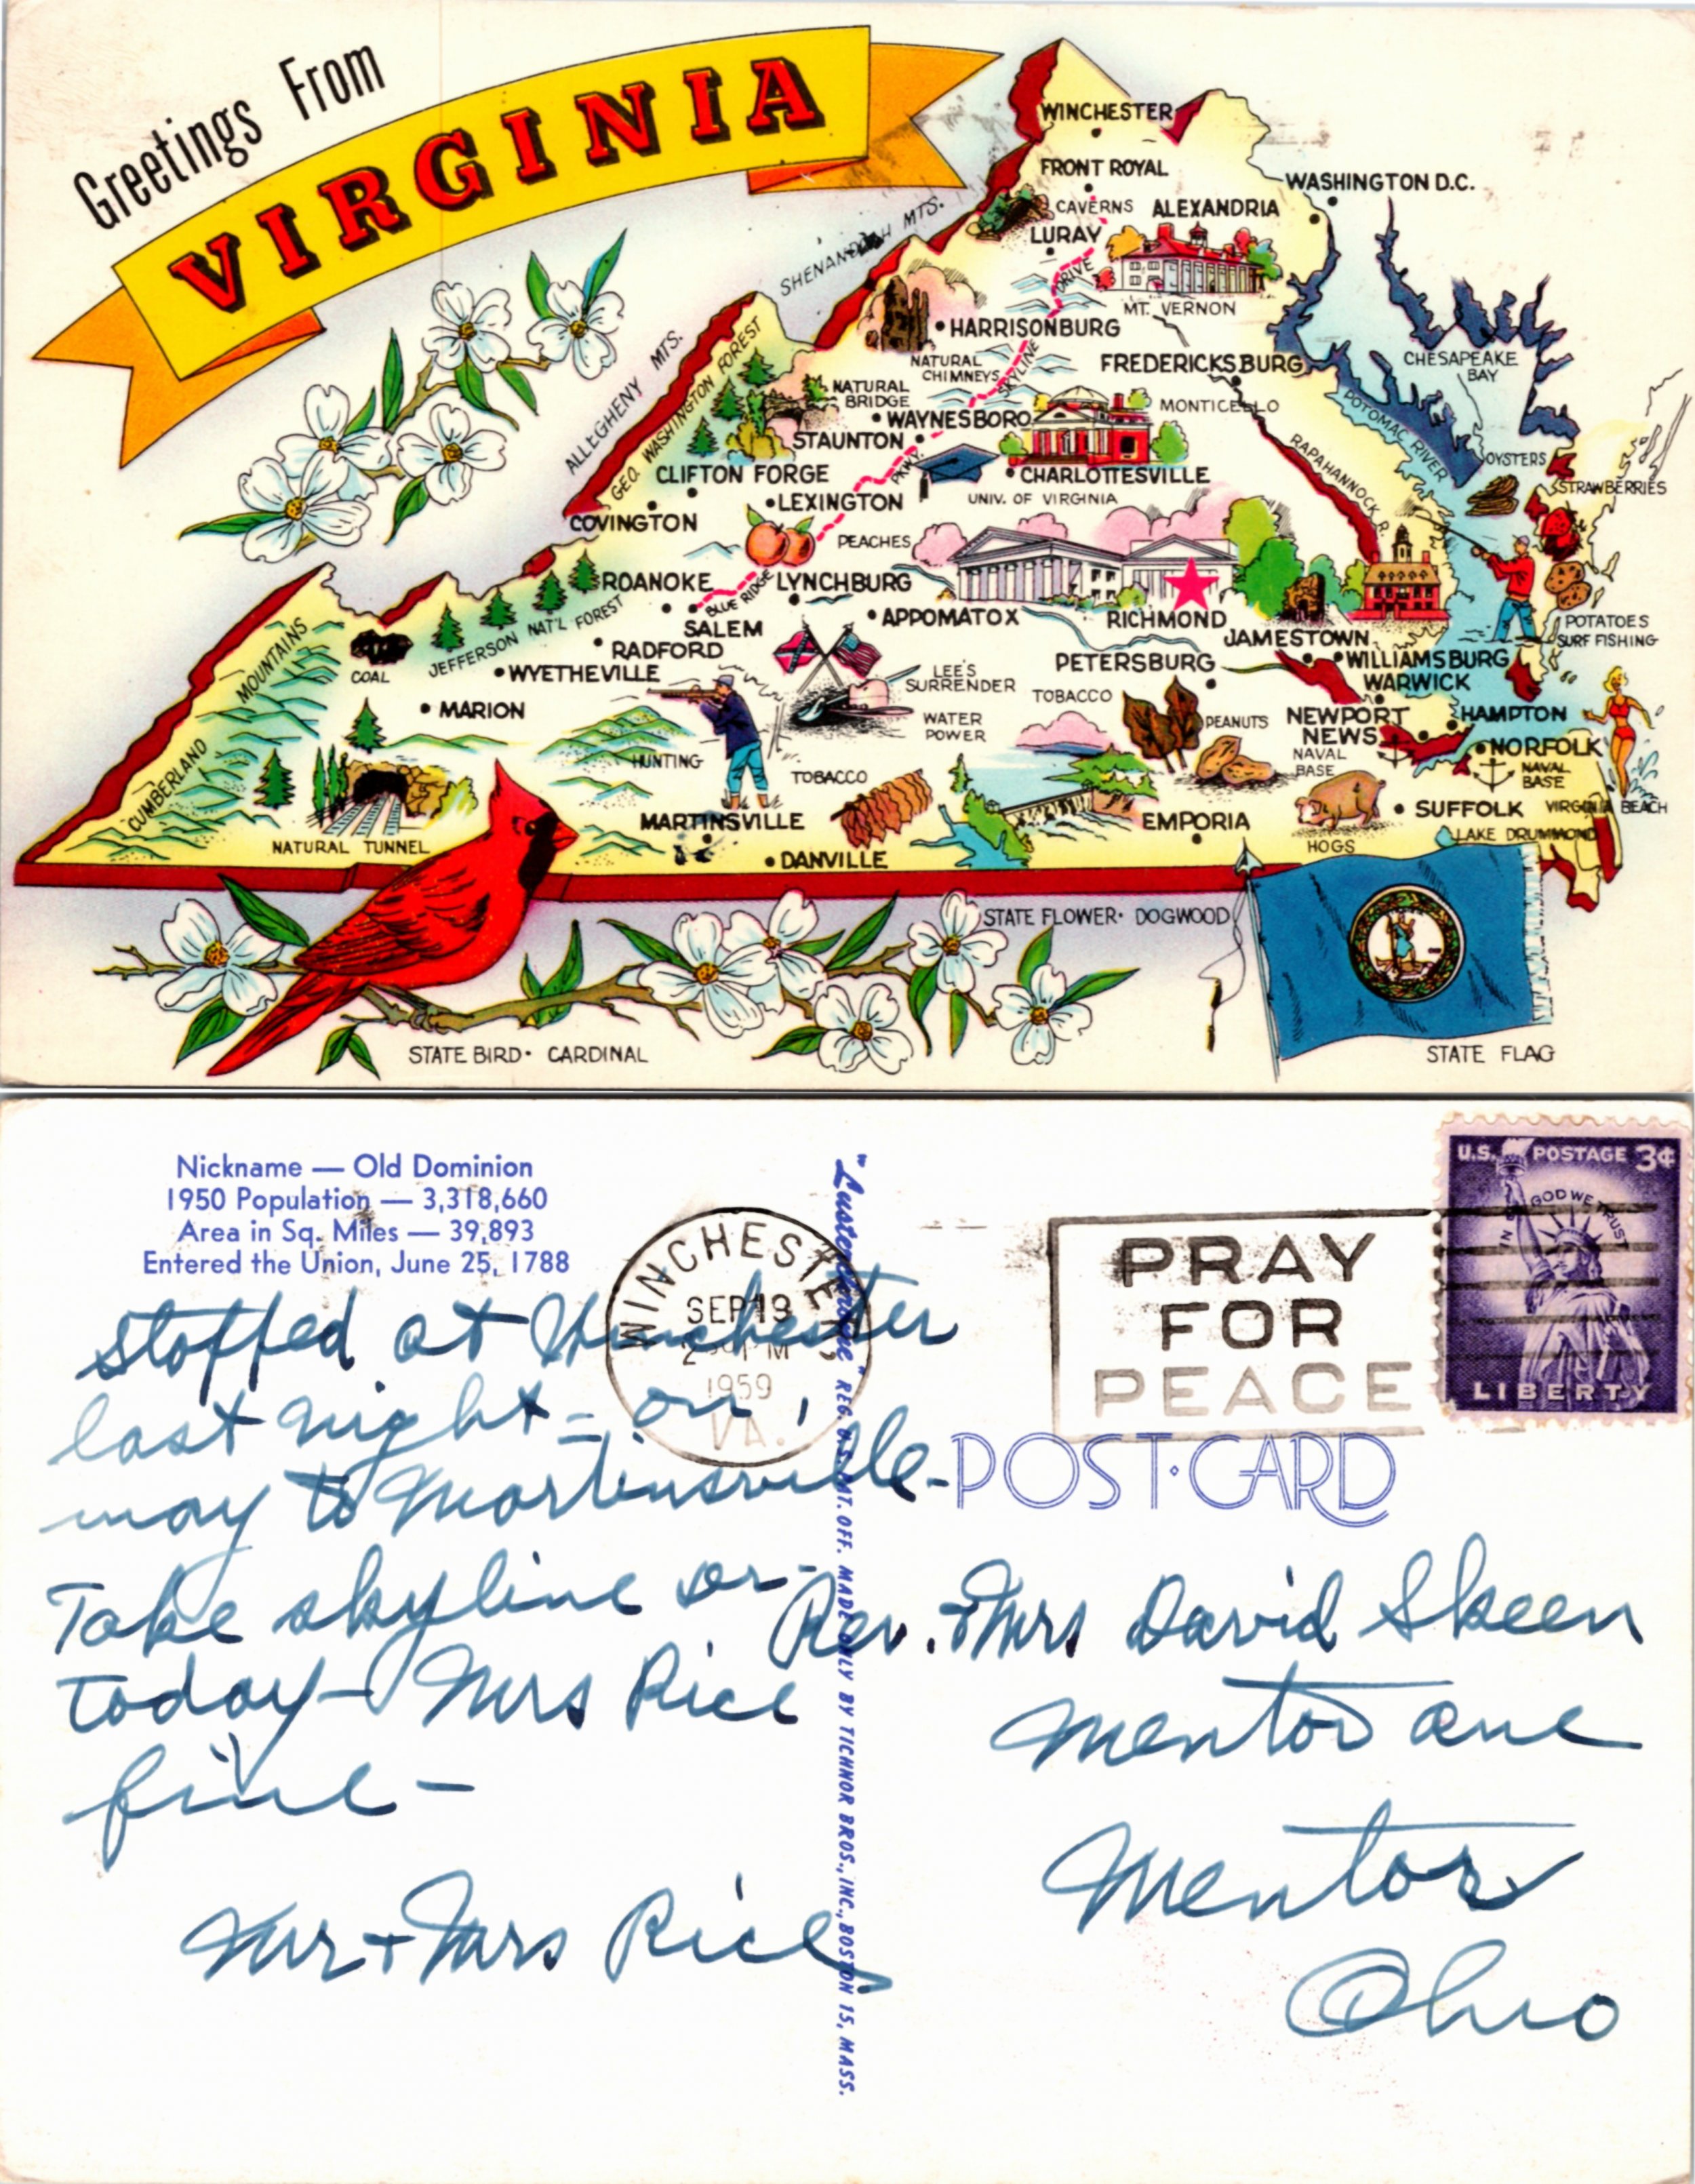 Greetings From
VIRGINIA
WINCHESTER
FRONT ROYAL
WASHINGTON D.C.
CAVERNS
ALEXANDRIA
LURAY
SHENANDOAH MTS.
DRIVE
MT. VERNON
HARRISONBURG
ALLEGHENY MTS.
GEO. WASHINGTON FOREST
NATURAL
CHIMNEYS
SKYLINE
FREDERICKSBURG
CHESAPEAKE
BAY
NATURAL
BRIDGE
WAYNESBORO
MONTICELLO
POTOMAC RIVER
STAUNTON
RAPAHANNOCK R.
OYSTERS
CLIFTON FORGE
PKWY.
CHARLOTTESVILLE
STRAWBERRIES
LEXINGTON
UNIV. OF VIRGINIA
COVINGTON
PEACHES
ROANOKE
BLUE RIDGE
LYNCHBURG
APPOMATOX
RICHMOND
POTATOES
SALEM
JEFFERSON NAT'L FOREST
JAMESTOWN
SURF FISHING
RADFORD
PETERSBURG
WILLIAMSBURG
COAL
WYETHEVILLE
LEE'S
SURRENDER
TOBACCO
WARWICK
MARION
WATER
POWER
PEANUTS
NEWPORT
NEWS
HAMPTON
NAVAL
BASE
NORFOLK
NAVAL
BASE
CUMBERLAND MOUNTAINS
HUNTING
TOBACCO
SUFFOLK
VIRGINIA BEACH
MARTINSVILLE
EMPORIA
LAKE DRUMMOND
NATURAL TUNNEL
DANVILLE
HOGS
STATE FLOWER • DOGWOOD
STATE BIRD • CARDINAL
STATE FLAG
Nickname — Old Dominion
1950 Population — 3,318,660
Area in Sq. Miles — 39,893
Entered the Union, June 25, 1788
WINCHESTER,
SEP 13
PM
1959
VA.
PRAY
FOR
PEACE
U.S. POSTAGE 3¢
IN GOD WE TRUST
LIBERTY
POST•CARD
stopped at Winchester
last night = on
way to Martinsville-
Take skyline dr-
today - Mrs Rice
fine -
Mr + Mrs Rice
Rev. + Mrs David Skeen
Mentor ave
Mentor
Ohio
REG. U.S. PAT. OFF. MADE ONLY BY TICHNOR BROS., INC., BOSTON 15, MASS.